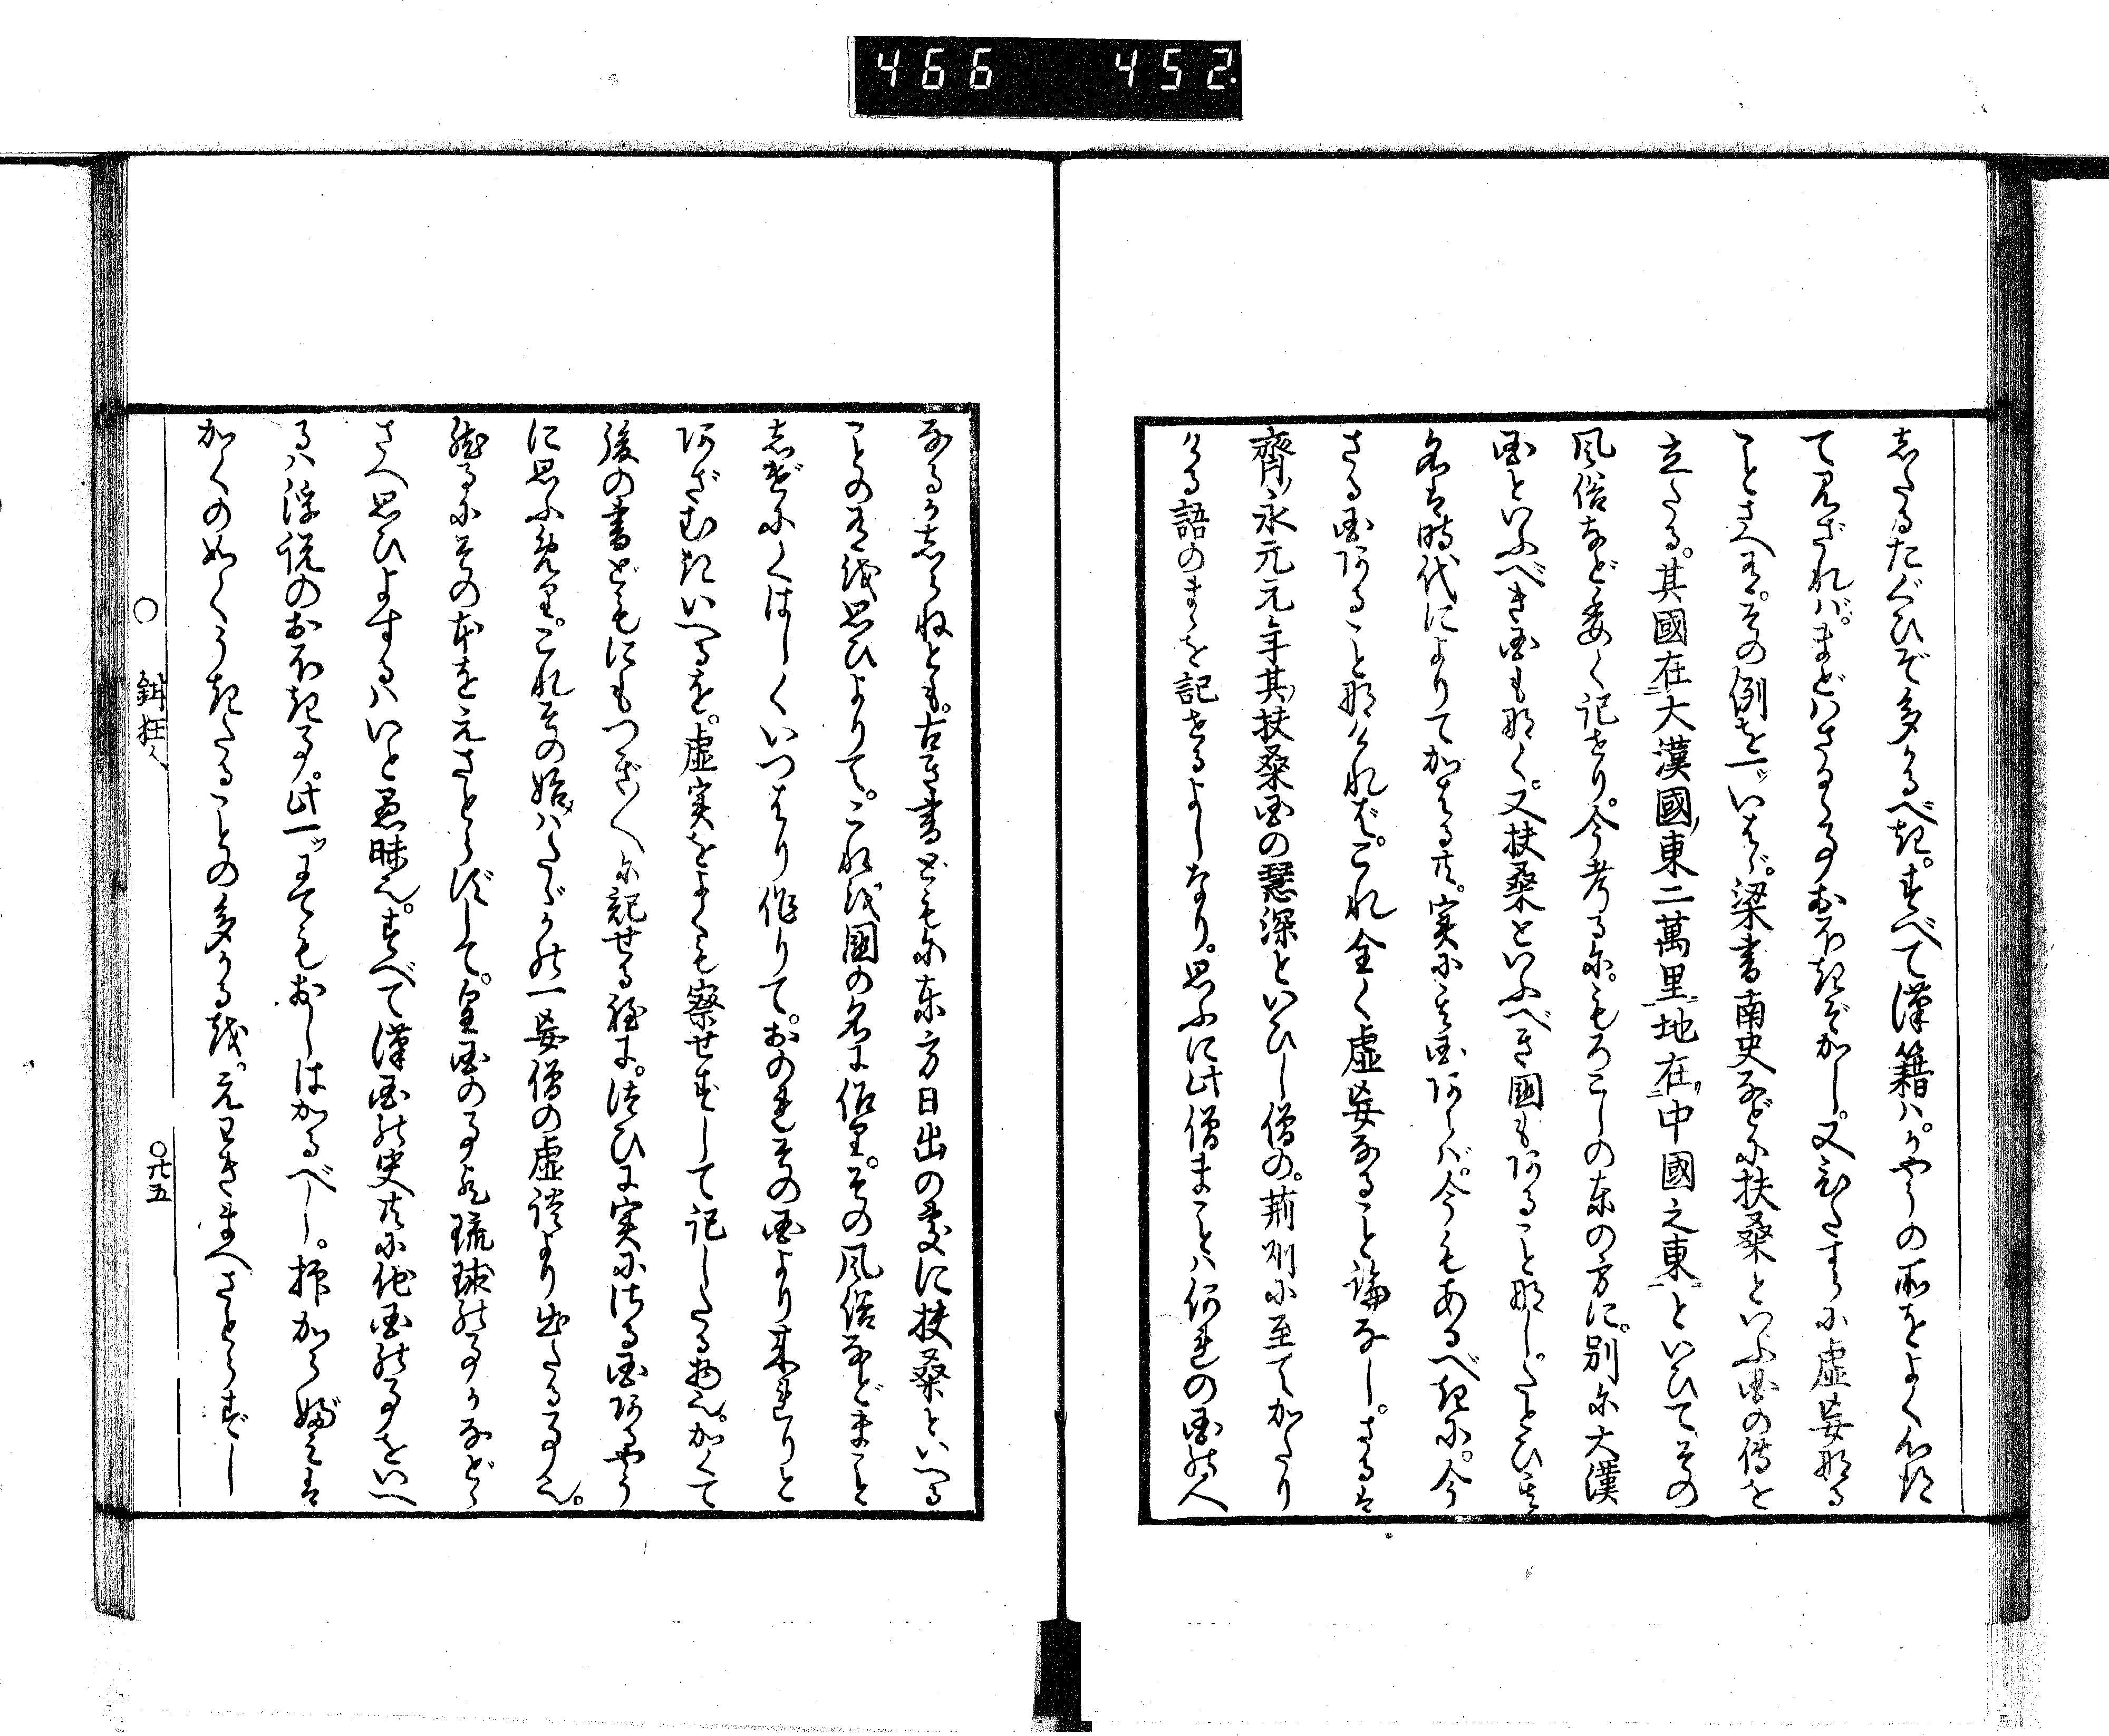 466 452
したるたぐひぞ多かるべき。すべて漢籍ハ。かやうの所をよく心得
て見ざれバ。まどハさるゝ事おほきぞかし。又ひたすらに虚妄なる
ことさへ有。その例を一ッいはゞ。梁書南史などに扶桑といふ国の傳を
立たる。其國在大漢國ノ東二萬里地在中國之東といひて、その
風俗など委く記せり。今考るに。もろこしの東の方に。別に大漢
国といふべき国も那く。又扶桑といふべき國もあること那し。たとひ其
名は時代によりてかはる共。実に其国あらバ。今もあるべきに。今
さる国あること那けれバ。これ全く虚妄なること論なし。さるは
齊ノ永元元年其ノ扶桑国の慧深といひし僧の。荊刕に至てかたり
ける語のまゝを記せるよしなり。思ふに此僧まことハ何れの国の人
なるかしらねとも。古き書ともに東方日出の處に扶桑といへる
ことの有を思ひよりて。これを國の名に佰里。その風俗などまこと
しげにくはしくいつはり作りて。おのれその国より来れりと
あざむきいへるを。虚実をよくも察せずして記したる物也。かくて
後の書どもにもつぎ〳〵に記せる程に。つひに実にさる国あるやう
に思ふめり。これその始メハたゞかの一妄僧の虚談より出たる事也。
然るにその本をえさとらずして。皇国の事歟琉球の事かなどゝ
さへ思ひよするハいと愚昧也。すべて漢国の史共に他国の事をいへ
るハ浮説のおほき事。此一ッにてもおしはかるべし。抑からぶみは
かくの如くうきたることの多かるを。えわきまへさとらずし
〇 鉗狂人 〇廿五